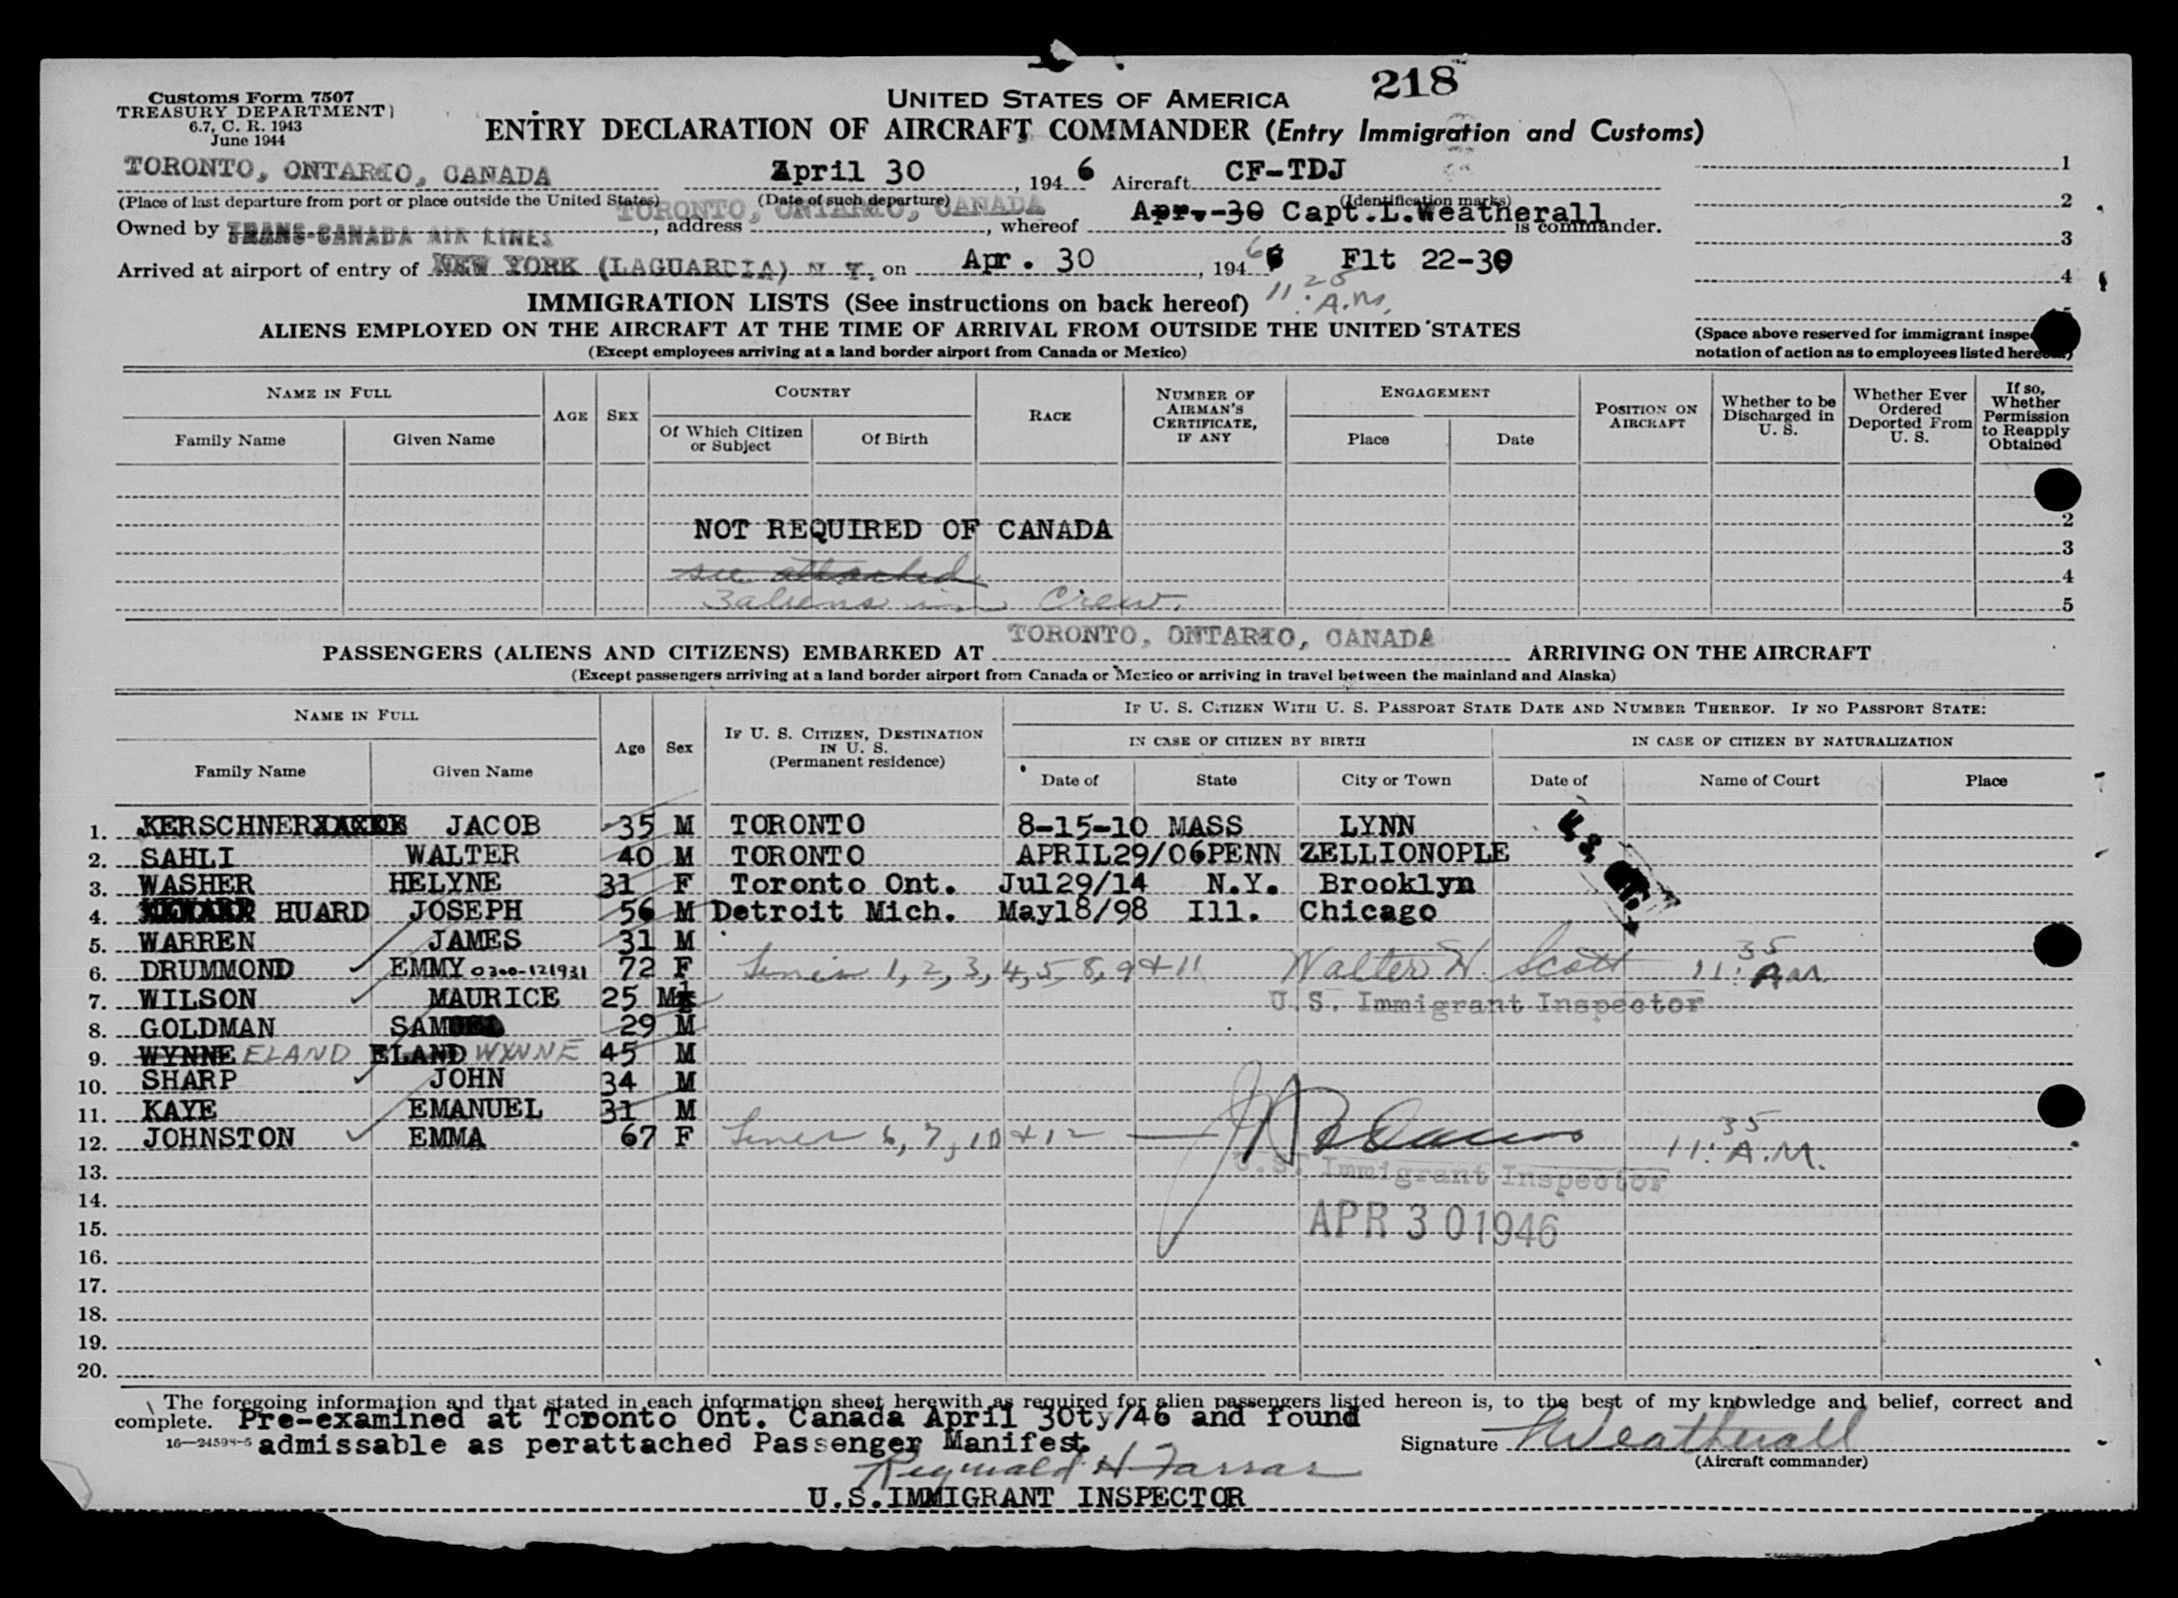 218
Customs Form 7507
TREASURY DEPARTMENT
6.7, C. R. 1943
June 1944
UNITED STATES OF AMERICA
ENTRY DECLARATION OF AIRCRAFT COMMANDER (Entry Immigration and Customs)
TORONTO, ONTARIO, CANADA April 30, 1946 Aircraft CF-TDJ
(Place of last departure from port or place outside the United States) (Date of such departure) (Identification marks)
TORONTO, ONTARIO, CANADA
Owned by TRANS-CANADA AIR LINES, address, whereof Apr.-30 Capt.L.Weatherall is commander.
Arrived at airport of entry of NEW YORK (LAGUARDIA) N. Y. on Apr. 30, 1946 Flt 22-30
11:25 A.M.
IMMIGRATION LISTS (See instructions on back hereof)
ALIENS EMPLOYED ON THE AIRCRAFT AT THE TIME OF ARRIVAL FROM OUTSIDE THE UNITED STATES
(Except employees arriving at a land border airport from Canada or Mexico)
1
2
3
4
5
(Space above reserved for immigrant
notation of action as to employees listed
NAME IN FULL
Family Name Given Name
AGE SEX
COUNTRY
Of Which Citizen or Subject Of Birth
RACE
NUMBER OF AIRMAN'S CERTIFICATE, IF ANY
ENGAGEMENT
Place Date
POSITION ON AIRCRAFT
Whether to be Discharged in U. S.
Whether Ever Ordered Deported From U. S.
If so, Whether Permission to Reapply Obtained
NOT REQUIRED OF CANADA
2
3
see attached 4
3 aliens in crew. 5
TORONTO, ONTARIO, CANADA
PASSENGERS (ALIENS AND CITIZENS) EMBARKED AT ARRIVING ON THE AIRCRAFT
(Except passengers arriving at a land border airport from Canada or Mexico or arriving in travel between the mainland and Alaska)
NAME IN FULL
Family Name Given Name
Age Sex
IF U. S. CITIZEN, DESTINATION IN U. S. (Permanent residence)
IF U. S. CITIZEN WITH U. S. PASSPORT STATE DATE AND NUMBER THEREOF. IF NO PASSPORT STATE:
IN CASE OF CITIZEN BY BIRTH IN CASE OF CITIZEN BY NATURALIZATION
Date of State City or Town Date of Name of Court Place
1. KERSCHNER JACOB 35 M TORONTO 8-15-10 MASS LYNN
2. SAHLI WALTER 40 M TORONTO APRIL29/06 PENN ZELLIONOPLE
3. WASHER HELYNE 31 F Toronto Ont. Jul29/14 N.Y. Brooklyn
4. HUARD JOSEPH 56 M Detroit Mich. May18/98 Ill. Chicago
U.S. Cit.
5. WARREN JAMES 31 M
6. DRUMMOND EMMY 0300-121931 72 F Lines 1, 2, 3, 4, 5, 8, 9 + 11 Walter H. Scott 11:35 AM
7. WILSON MAURICE 25 M U.S. Immigrant Inspector
8. GOLDMAN SAMUEL 29 M
9. WYNNE ELAND ELAND WYNNE 45 M
10. SHARP JOHN 34 M
11. KAYE EMANUEL 31 M
12. JOHNSTON EMMA 67 F Lines 6, 7, 10 + 12 11:35 A.M.
13. U.S. Immigrant Inspector
14.
15. APR 30 1946
16.
17.
18.
19.
20.
The foregoing information and that stated in each information sheet herewith as required for alien passengers listed hereon is, to the best of my knowledge and belief, correct and
complete. Pre-examined at Toronto Ont. Canada April 30ty/46 and found
16—24598-5 admissable as perattached Passenger Manifest.
Signature Weatherall
(Aircraft commander)
Reginald H Farrar
U.S.IMMIGRANT INSPECTOR